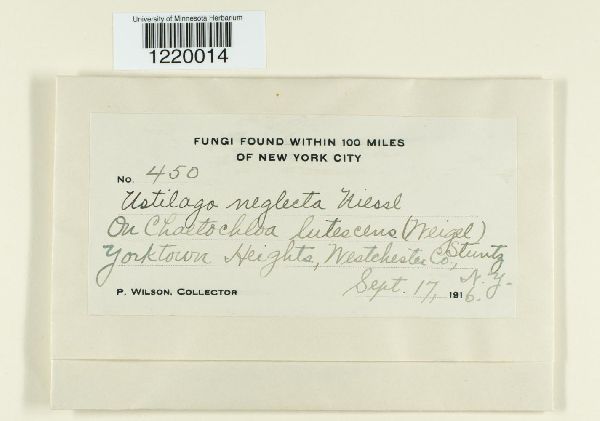 University of Minnesota Herbarium
1220014
FUNGI FOUND WITHIN 100 MILES
OF NEW YORK CITY
No. 450
Ustilago neglecta Niessl
On Chaetochloa lutescens (Weigel)
Stuntz
Yorktown Heights, Westchester Co.,
N. Y.
Sept. 17, 1916.
P. WILSON, COLLECTOR